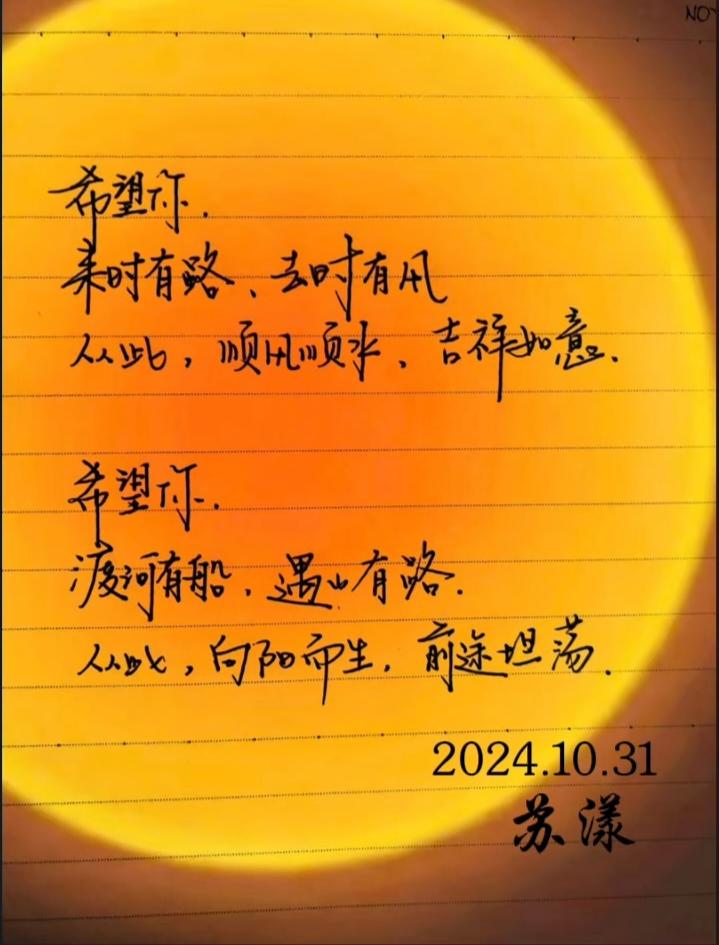 NO
希望你.
来时有路、去时有风
从此，顺风顺水、吉祥如意.
希望你.
渡河有船、遇山有路.
从此，向阳而生，前途坦荡.
2024.10.31
苏漾